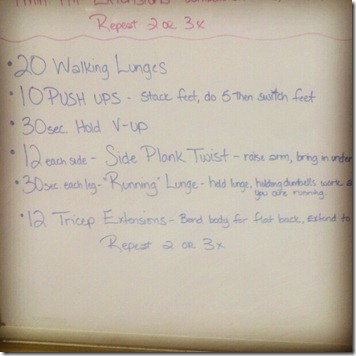 Repeat 2 or 3x
• 20 Walking Lunges
• 10 PUSH UPS - stack feet, do 5 then switch feet
• 30sec Hold V-up
• 12 each side - Side Plank Twist - raise arm, bring in under
• 30sec each leg - "Running" Lunge - hold lunge, holding dumbells work as
you are running.
• 12 Tricep Extensions - Bend body for flat back, Extend to
Repeat 2 or 3x